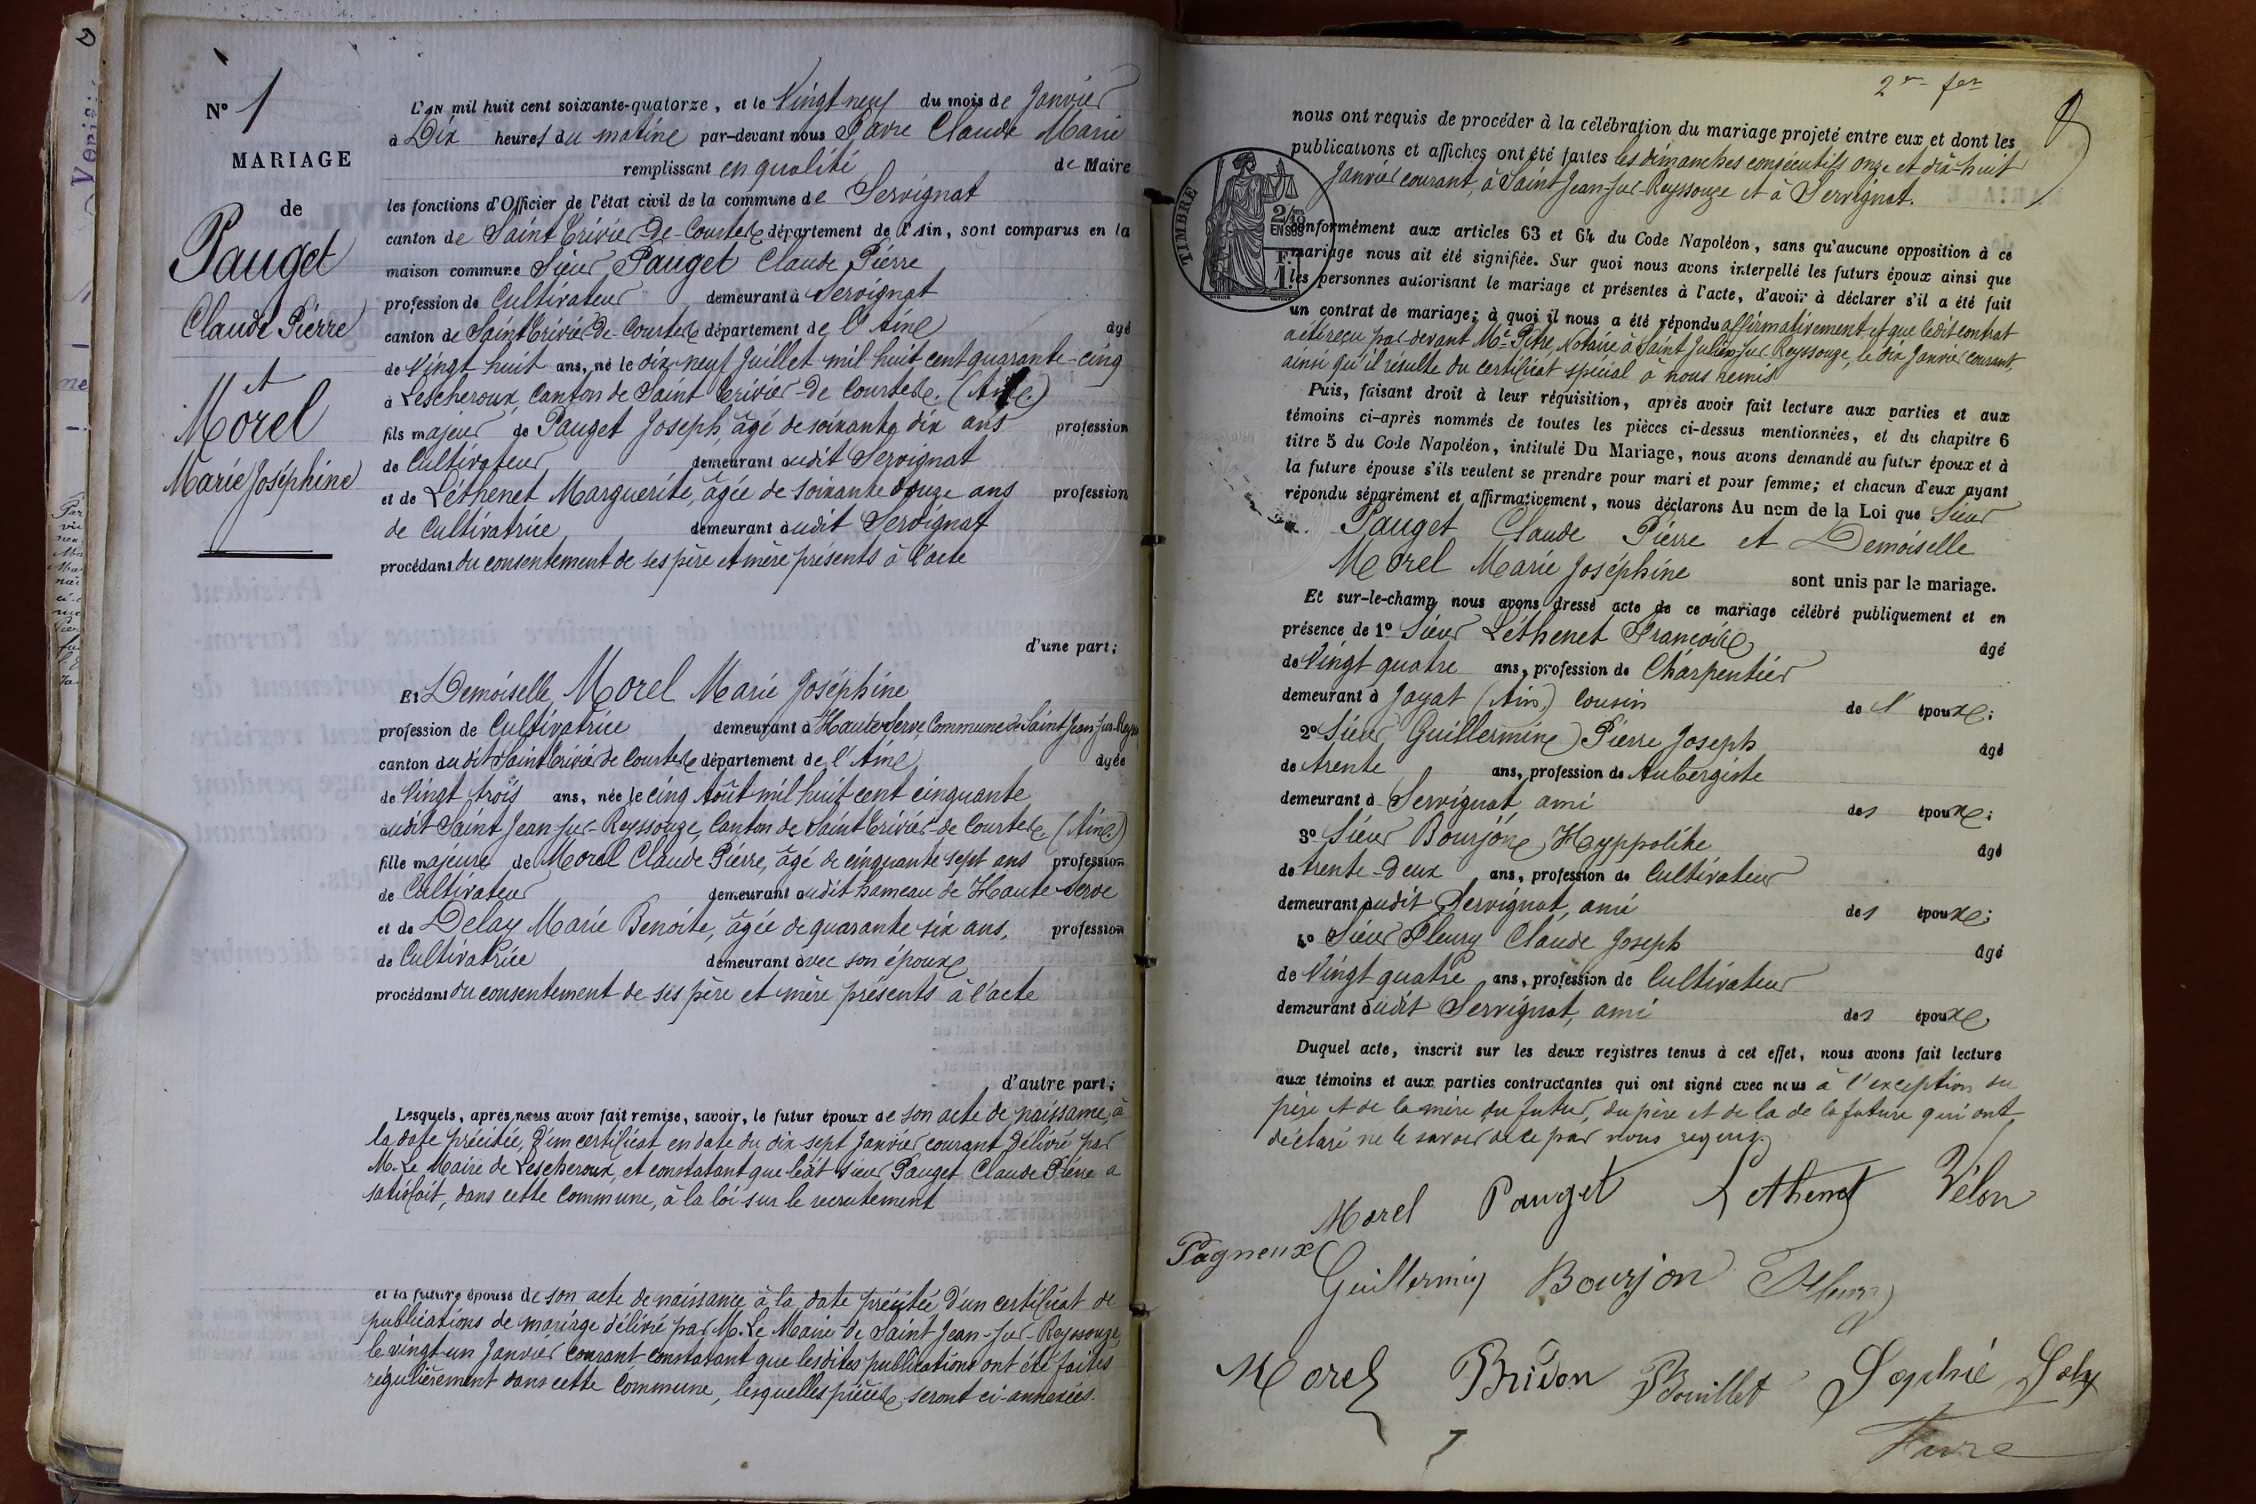 N° 1
MARIAGE
de
Pauget
Claude Pierre
et
Morel
Marie Joséphine
L'AN mil huit cent soixante-quatorze, et le Vingt neuf du mois de Janvier
à Dix heures du matin par-devant nous Favre Claude Marie
remplissant en qualité de Maire
les fonctions d'Officier de l'état civil de la commune de Servignat
canton de Saint Trivier-De-Courtes département de l'Ain, sont comparus en la
maison commune Sieur Pauget Claude Pierre
profession de Cultivateur demeurant à Servignat
canton de Saint Trivier De Courtes département de l'Ain âgé
de Vingt huit ans, né le dix neuf Juillet mil huit cent quarante-cinq
à Lescheroux, Canton de Saint Trivier-De Courtes (Ain)
fils majeur de Pauget Joseph, âgé de soixante dix ans profession
de Cultivateur demeurant audit Servignat
et de Léthenet Marguerite, âgée de soixante douze ans profession
de Cultivatrice demeurant audit Servignat
procédant du consentement de ses père et mère présents à l'acte
d'une part;
Et Demoiselle Morel Marie Joséphine
profession de Cultivatrice demeurant à Haute-Serve, Commune de Saint Jean-sur-Reyss
canton dudit Saint Trivier de Courtes département de l'Ain âgée
de Vingt trois ans, née le cinq Août mil huit cent cinquante
audit Saint Jean-sur-Reyssouze, Canton de Saint Trivier-de Courtes (Ain)
fille majeure de Morel Claude Pierre, âgé de cinquante sept ans profession
de Cultivateur demeurant audit hameau de Haute-Serve
et de Delay Marie Benoite, âgée de quarante six ans, profession
de Cultivatrice demeurant avec son époux
procédant du consentement de ses père et mère présents à l'acte
d'autre part;
Lesquels, après nous avoir fait remise, savoir, le futur époux de son acte de naissance, à
la date précitée, d'un certificat en date du dix sept Janvier courant délivré par
M. Le Maire de Lescheroux, et constatant que ledit sieur Pauget Claude Pierre a
satisfait, dans cette Commune, à la loi sur le recrutement
et la future épouse de son acte de naissance à la date précitée, d'un certificat de
publications de mariage délivré par M. Le Maire de Saint Jean-sur-Reyssouze,
le vingt-un Janvier courant constatant que lesdites publications ont été faites
régulièrement dans cette Commune, lesquelles pièces seront ci-annexées.
2e fer
nous ont requis de procéder à la célébration du mariage projeté entre eux et dont les
publications et affiches ont été faites les dimanches consécutifs onze et dix-huit
Janvier courant, à Saint Jean-sur-Reyssouze et à Servignat.
TIMBRE
2/10
EN SUS
1F
Conformément aux articles 63 et 64 du Code Napoléon, sans qu'aucune opposition à ce
mariage nous ait été signifiée. Sur quoi nous avons interpellé les futurs époux ainsi que
les personnes autorisant le mariage et présentes à l'acte, d'avoir à déclarer s'il a été fait
un contrat de mariage; à quoi il nous a été répondu affirmativement, et que ledit contrat
a été reçu par-devant Me Pitre, Notaire à Saint Julien-sur-Reyssouze, le dix Janvier courant,
ainsi qu'il résulte du certificat spécial à nous remis
Puis, faisant droit à leur réquisition, après avoir fait lecture aux parties et aux
témoins ci-après nommés de toutes les pièces ci-dessus mentionnées, et du chapitre 6
titre 5 du Code Napoléon, intitulé Du Mariage, nous avons demandé au futur époux et à
la future épouse s'ils veulent se prendre pour mari et pour femme; et chacun d'eux ayant
répondu séparément et affirmativement, nous déclarons Au nom de la Loi que Sieur
Pauget Claude Pierre et Demoiselle
Morel Marie Joséphine sont unis par le mariage.
Et sur-le-champ nous avons dressé acte de ce mariage célébré publiquement et en
présence de 1° Sieur Léthenet François âgé
de Vingt quatre ans, profession de Charpentier
demeurant à Jayat (Ain) cousin de l'époux;
2° Sieur Guillermin Pierre Joseph âgé
de trente ans, profession de Aubergiste
demeurant à Servignat, ami des époux;
3° Sieur Bourjon Hyppolite âgé
de trente-deux ans, profession de Cultivateur
demeurant audit Servignat, ami des époux;
4° Sieur Fleury Claude Joseph âgé
de Vingt quatre ans, profession de Cultivateur
demeurant audit Servignat, ami des époux.
Duquel acte, inscrit sur les deux registres tenus à cet effet, nous avons fait lecture
aux témoins et aux parties contractantes qui ont signé avec nous à l'exception du
père et de la mère du futur, du père et de la de la future qui ont
déclaré ne le savoir de ce par nous requis.
Morel Pauget Lethenet Vélon
Pagneux
Guillermin Bourjon Fleury
Morel Bridon Bouillet Sophie Joly
Favre